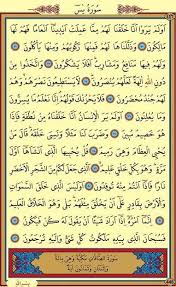 سُورَةُ يٰسٓ
اَوَلَمْ يَرَوْا اَنَّا خَلَقْنَا لَهُمْ مِمَّا عَمِلَتْ اَيْدِينَا اَنْعَامًا فَهُمْ لَهَا
مَالِكُونَ وَذَلَّلْنَاهَا لَهُمْ فَمِنْهَا رَكُوبُهُمْ وَمِنْهَا يَاْكُلُونَ
وَلَهُمْ فِيهَا مَنَافِعُ وَمَشَارِبُ اَفَلَا يَشْكُرُونَ وَاتَّخَذُوا مِنْ
دُونِ اللّٰهِ اٰلِهَةً لَعَلَّهُمْ يُنْصَرُونَ لَا يَسْتَطِيعُونَ نَصْرَهُمْ وَهُمْ
لَهُمْ جُنْدٌ مُحْضَرُونَ فَلَا يَحْزُنْكَ قَوْلُهُمْ اِنَّا نَعْلَمُ مَا يُسِرُّونَ
وَمَا يُعْلِنُونَ اَوَلَمْ يَرَ الْاِنْسَانُ اَنَّا خَلَقْنَاهُ مِنْ نُطْفَةٍ فَاِذَا
هُوَ خَصِيمٌ مُبِينٌ وَضَرَبَ لَنَا مَثَلًا وَنَسِيَ خَلْقَهُ قَالَ مَنْ
يُحْيِي الْعِظَامَ وَهِيَ رَمِيمٌ قُلْ يُحْيِيهَا الَّذِي اَنْشَاَهَا اَوَّلَ
مَرَّةٍ وَهُوَ بِكُلِّ خَلْقٍ عَلِيمٌ الَّذِي جَعَلَ لَكُمْ مِنَ الشَّجَرِ
الْاَخْضَرِ نَارًا فَاِذَا اَنْتُمْ مِنْهُ تُوقِدُونَ اَوَلَيْسَ الَّذِي خَلَقَ السَّمٰوَاتِ
وَالْاَرْضَ بِقَادِرٍ عَلٰى اَنْ يَخْلُقَ مِثْلَهُمْ بَلٰى وَهُوَ الْخَلَّاقُ الْعَلِيمُ
اِنَّمَا اَمْرُهُ اِذَا اَرَادَ شَيْئًا اَنْ يَقُولَ لَهُ كُنْ فَيَكُونُ
فَسُبْحَانَ الَّذِي بِيَدِهِ مَلَكُوتُ كُلِّ شَيْءٍ وَاِلَيْهِ تُرْجَعُونَ
سُورَةُ الصَّافَّاتِ مَكِّيَّةٌ وَهِيَ مِائَةٌ
وَاثْنَتَانِ وَثَمَانُونَ اٰيَةً